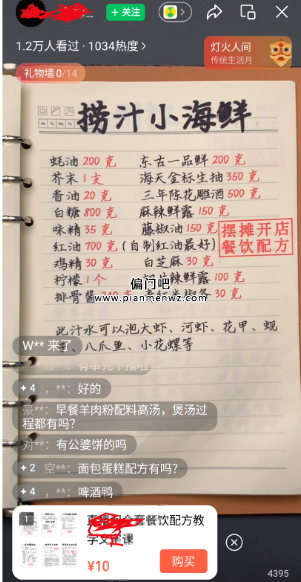 关注
1.2万人看过 · 1034热度 >
灯火人间
传统生活月
礼物墙 0/14
捞汁小海鲜
蚝油 200 克 东古一品鲜 200 克
芥末 1 支 海天金标生抽 350 克
香油 20 克 三年陈花雕酒 500 克
白糖 800 克 麻辣鲜露 150 克
味精 35 克 藤椒油 150 克
红油 700 克 (自制红油最好)
鸡精 30 克 白芝麻 30 克
柠檬 1 个 辣鲜露 100 克
排骨酱 240 克 30 克
摆摊开店
餐饮配方
偏门吧
www.pianmenwz.com
此汁水可以泡大虾、河虾、花甲、蚬
、八爪鱼、小花螺等
W** 来了
+4 ，**：好的
**：早餐羊肉粉配料高汤，煲汤过
程都有吗？
对**：有公婆饼的吗
+2 空**：面包蛋糕配方有吗？
+4 ，**：啤酒鸭
1
餐饮配方教
学文 课
¥10
购买
4395